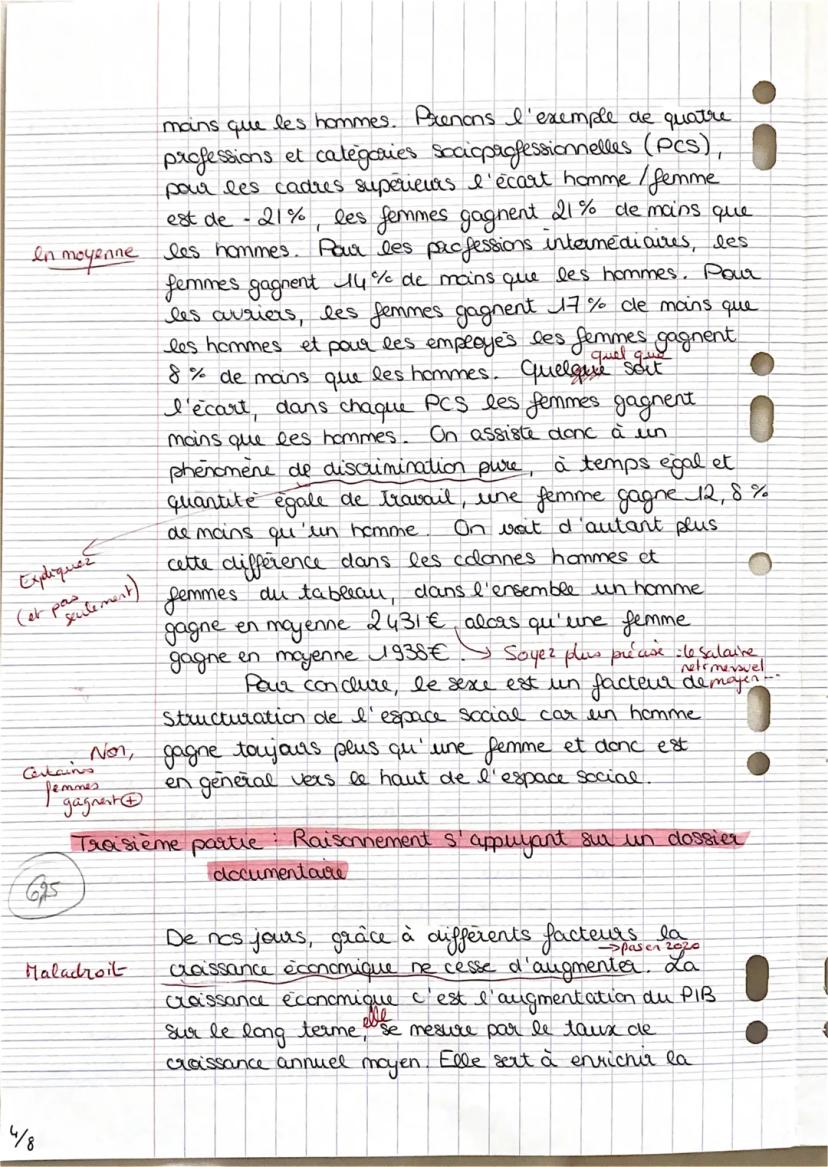 moins que les hommes. Prenons l'exemple de quatre
professions et catégories socioprofessionnelles (PCS),
pour les cadres supérieurs l'écart homme/femme
est de - 21%, les femmes gagnent 21% de moins que
en moyenne
les hommes. Pour les professions intermédiaires, les
femmes gagnent 14% de moins que les hommes. Pour
les ouvriers, les femmes gagnent 17% de moins que
les hommes et pour les employés les femmes gagnent
quel que
8% de moins que les hommes. Quelque soit
l'écart, dans chaque PCS les femmes gagnent
moins que les hommes. On assiste donc à un
phénomène de discrimination pure, à temps égal et
quantité égale de travail, une femme gagne 12,8%
de moins qu'un homme. On voit d'autant plus
Expliquez
(et pas seulement)
cette différence dans les colonnes hommes et
femmes du tableau, dans l'ensemble un homme
gagne en moyenne 2431€, alors qu'une femme
gagne en moyenne 1938€.
→ Soyez plus précise : le salaire
net mensuel
moyen...
Pour conclure, le sexe est un facteur de
structuration de l'espace social car un homme
Non,
certaines
femmes
gagnent ⊕
gagne toujours plus qu'une femme et donc est
en général vers le haut de l'espace social.
Troisième partie : Raisonnement s'appuyant sur un dossier
documentaire
6,25
De nos jours, grâce à différents facteurs la
→ pas en 2020
Maladroit
croissance économique ne cesse d'augmenter. La
croissance économique c'est l'augmentation du PIB
elle
sur le long terme, se mesure par le taux de
croissance annuel moyen. Elle sert à enrichir la
4/8